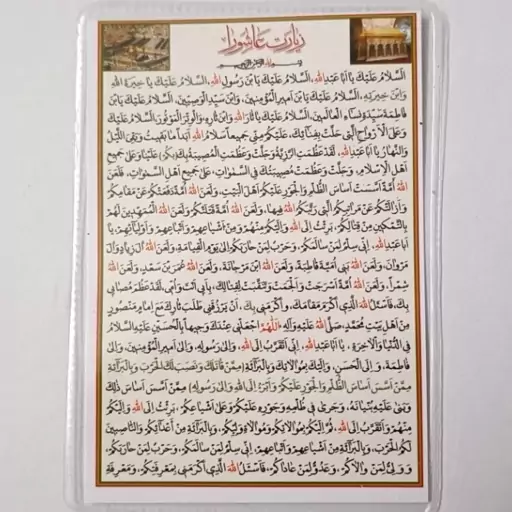 زیارت عاشورا
بسم الله الرحمن الرحیم
اَلسَّلامُ عَلَيْكَ يا اَبا عَبْدِاللهِ، اَلسَّلامُ عَلَيْكَ يَابْنَ رَسُولِ اللهِ، اَلسَّلامُ عَلَيْكَ يا خِيَرَةَ اللهِ
وَابْنَ خِيَرَتِهِ، اَلسَّلامُ عَلَيْكَ يَابْنَ اَميرِ الْمُؤْمِنينَ، وَابْنَ سَيِّدِ الْوَصِيّينَ، اَلسَّلامُ عَلَيْكَ يَابْنَ
فاطِمَةَ سَيِّدَةِ نِساءِ الْعالَمينَ، اَلسَّلامُ عَلَيْكَ يا ثارَ اللهِ وَابْنَ ثارِهِ، وَالْوِتْرَ الْمَوْتُورَ، اَلسَّلامُ عَلَيْكَ
وَعَلَى الْاَرْواحِ الَّتي حَلَّتْ بِفِنائِكَ، عَلَيْكُمْ مِنّي جَميعاً سَلامُ اللهِ اَبَداً ما بَقيتُ وَبَقِيَ اللَّيْلُ
وَالنَّهارُ يا اَبا عَبْدِاللهِ، لَقَدْ عَظُمَتِ الرَّزِيَّةُ وَجَلَّتْ وَعَظُمَتِ الْمُصيبَةُ بِكَ (بِكُمْ) عَلَيْنا وَعَلى جَميعِ
اَهْلِ الْاِسْلامِ، وَجَلَّتْ وَعَظُمَتْ مُصيبَتُكَ فِي السَّمواتِ، عَلى جَميعِ اَهْلِ السَّمواتِ، فَلَعَنَ
اللهُ اُمَّةً اَسَّسَتْ اَساسَ الظُّلْمِ وَالْجَوْرِ عَلَيْكُمْ اَهْلَ الْبَيْتِ، وَلَعَنَ اللهُ اُمَّةً دَفَعَتْكُمْ عَنْ مَقامِكُمْ
وَاَزالَتْكُمْ عَنْ مَراتِبِكُمُ الَّتي رَتَّبَكُمُ اللهُ فيها، وَلَعَنَ اللهُ اُمَّةً قَتَلَتْكُمْ وَلَعَنَ اللهُ الْمُمَهِّدينَ لَهُمْ
بِالتَّمْكينِ مِنْ قِتالِكُمْ، بَرِئْتُ اِلَى اللهِ وَاِلَيْكُمْ مِنْهُمْ وَمِنْ اَشْياعِهِمْ وَاَتْباعِهِمْ وَاَوْلِيائِهِمْ، يا
اَبا عَبْدِاللهِ، اِنّي سِلْمٌ لِمَنْ سالَمَكُمْ، وَحَرْبٌ لِمَنْ حارَبَكُمْ اِلى يَوْمِ الْقِيامَةِ، وَلَعَنَ اللهُ آلَ زِيادٍ وَآلَ
مَرْوانَ، وَلَعَنَ اللهُ بَني اُمَيَّةَ قاطِبَةً، وَلَعَنَ اللهُ ابْنَ مَرْجانَةَ، وَلَعَنَ اللهُ عُمَرَ بْنَ سَعْدٍ، وَلَعَنَ اللهُ
شِمْراً، وَلَعَنَ اللهُ اُمَّةً اَسْرَجَتْ وَاَلْجَمَتْ وَتَنَقَّبَتْ لِقِتالِكَ، بِاَبي اَنْتَ وَاُمّي، لَقَدْ عَظُمَ مُصابي
بِكَ، فَاَسْئَلُ اللهَ الَّذي اَكْرَمَ مَقامَكَ، وَاَكْرَمَني بِكَ، اَنْ يَرْزُقَني طَلَبَ ثارِكَ مَعَ اِمامٍ مَنْصُورٍ
مِنْ اَهْلِ بَيْتِ مُحَمَّدٍ صَلَّى اللهُ عَلَيْهِ وَآلِهِ، اَللّهُمَّ اجْعَلْني عِنْدَكَ وَجيهاً بِالْحُسَيْنِ عَلَيْهِ السَّلامُ
فِي الدُّنْيا وَالْآخِرَةِ، يا اَبا عَبْدِاللهِ، اِنّي اَتَقَرَّبُ اِلَى اللهِ، وَاِلى رَسُولِهِ، وَاِلى اَميرِ الْمُؤْمِنينَ، وَاِلى
فاطِمَةَ، وَاِلَى الْحَسَنِ، وَاِلَيْكَ بِمُوالاتِكَ وَبِالْبَرائَةِ مِمَّنْ قاتَلَكَ وَنَصَبَ لَكَ الْحَرْبَ وَبِالْبَرائَةِ
مِمَّنْ اَسَّسَ اَساسَ الظُّلْمِ وَالْجَوْرِ عَلَيْكُمْ وَاَبْرَءُ اِلَى اللهِ وَاِلى رَسُولِهِ) مِمَّنْ اَسَّسَ اَساسَ ذلِكَ
وَبَنى عَلَيْهِ بُنْيانَهُ، وَجَرى في ظُلْمِهِ وَجَوْرِهِ عَلَيْكُمْ وَعَلى اَشْياعِكُمْ، بَرِئْتُ اِلَى اللهِ وَاِلَيْكُمْ
مِنْهُمْ وَاَتَقَرَّبُ اِلَى اللهِ، ثُمَّ اِلَيْكُمْ بِمُوالاتِكُمْ وَمُوالاةِ وَلِيِّكُمْ، وَبِالْبَرائَةِ مِنْ اَعْدائِكُمْ، وَالنّاصِبينَ
لَكُمُ الْحَرْبَ، وَبِالْبَرائَةِ مِنْ اَشْياعِهِمْ وَاَتْباعِهِمْ، اِنّي سِلْمٌ لِمَنْ سالَمَكُمْ، وَحَرْبٌ لِمَنْ حارَبَكُمْ،
وَوَلِيٌّ لِمَنْ والاكُمْ، وَعَدُوٌّ لِمَنْ عاداكُمْ، فَاَسْئَلُ اللهَ الَّذي اَكْرَمَني بِمَعْرِفَتِكُمْ، وَمَعْرِفَةِ